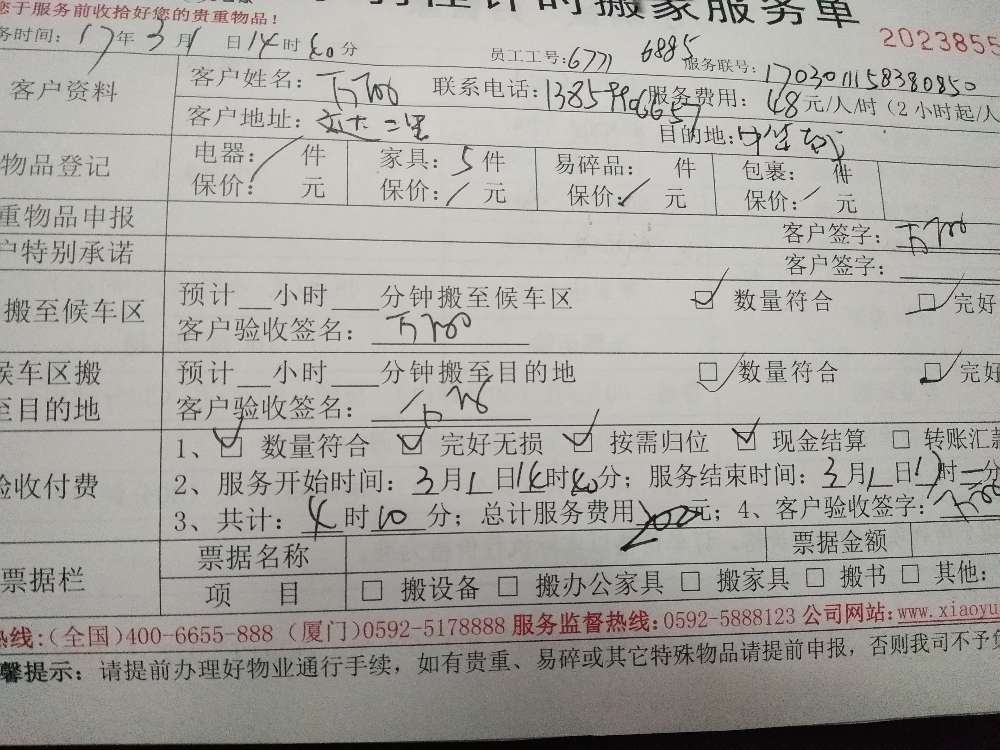 您于服务前收拾好您的贵重物品！
时搬家服务单
务时间：17年3月1日14时40分 员工工号：6771 6885 服务联号：1703011158380850
2023855
客户资料
客户姓名： 联系电话： 服务费用：48元/人/时（2小时起/人
客户地址： 二里 目的地：中华城
物品登记
电器：/件 家具：5件 易碎品： 件 包裹： 件
保价： 元 保价：/元 保价：/元 保价：/元
重物品申报 客户签字：
户特别承诺 客户签字：
搬至候车区
预计__小时___分钟搬至候车区 ☑ 数量符合 ☑ 完好
客户验收签名：
候车区搬
至目的地
预计__小时___分钟搬至目的地 ☑ 数量符合 ☑ 完好
客户验收签名：
验收付费
1、☑ 数量符合 ☑ 完好无损 ☑ 按需归位 ☑ 现金结算 □ 转账汇款
2、服务开始时间：3月1日14时40分；服务结束时间：3月1日17时 分
3、共计：4时10分；总计服务费用200元；4、客户验收签字：
票据栏
票据名称 票据金额
项 目 □ 搬设备 □ 搬办公家具 □ 搬家具 □ 搬书 □ 其他：
热线：（全国）400-6655-888（厦门）0592-5178888 服务监督热线：0592-5888123 公司网站：www.xiaoyu
馨提示：请提前办理好物业通行手续，如有贵重、易碎或其它特殊物品请提前申报，否则我司不予